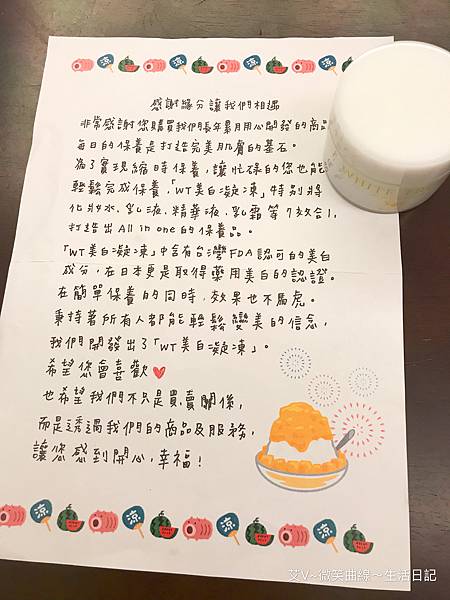 感謝緣分讓我們相遇
非常感謝您購買我們長年累月用心開發的商品
每日的保養是打造完美肌膚的基石。
為了實現縮時保養，讓忙碌的您也能
輕鬆完成保養，「WT美白凝凍」特別將
化妝水、乳液、精華液、乳霜等7效合1，
打造出All in one的保養品。
「WT美白凝凍」中含有台灣FDA認可的美白
成分，在日本更是取得藥用美白的認證。
在簡單保養的同時，效果也不馬虎。
秉持著所有人都能輕鬆變美的信念，
我們開發出了「WT美白凝凍」。
希望您會喜歡
也希望我們不只是買賣關係，
而是透過我們的商品及服務，
讓您感到開心，幸福！
WHITE
艾V~微笑曲線～生活日記